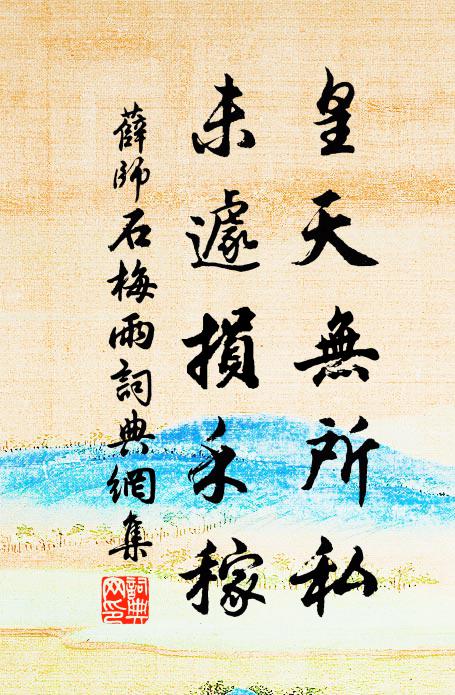 皇天無所私
未遽損禾稼
薛師石梅雨詞典網集
詞典